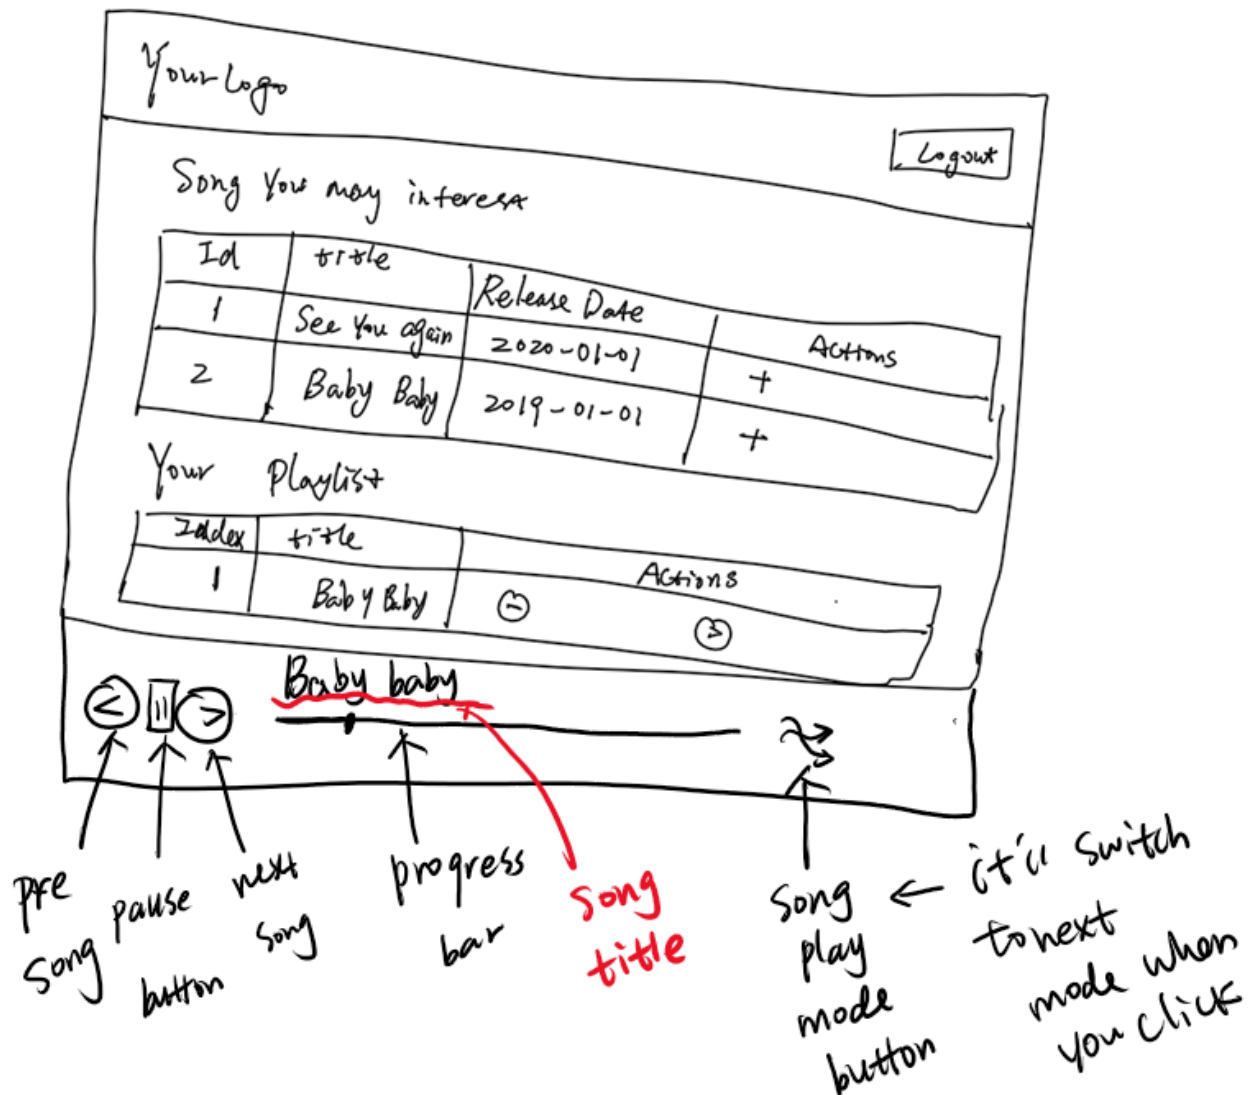 Your Logo
Logout
Song You may interest
Id title Release Date Actions
1 See You again 2020-01-01 +
2 Baby Baby 2019-01-01 +
Your Playlist
title Actions
1 Baby Baby
Baby baby
pre
song
pause
button
next
song
progress
bar
song
title
song
play
mode
button
it'll switch
to next
mode when
you click